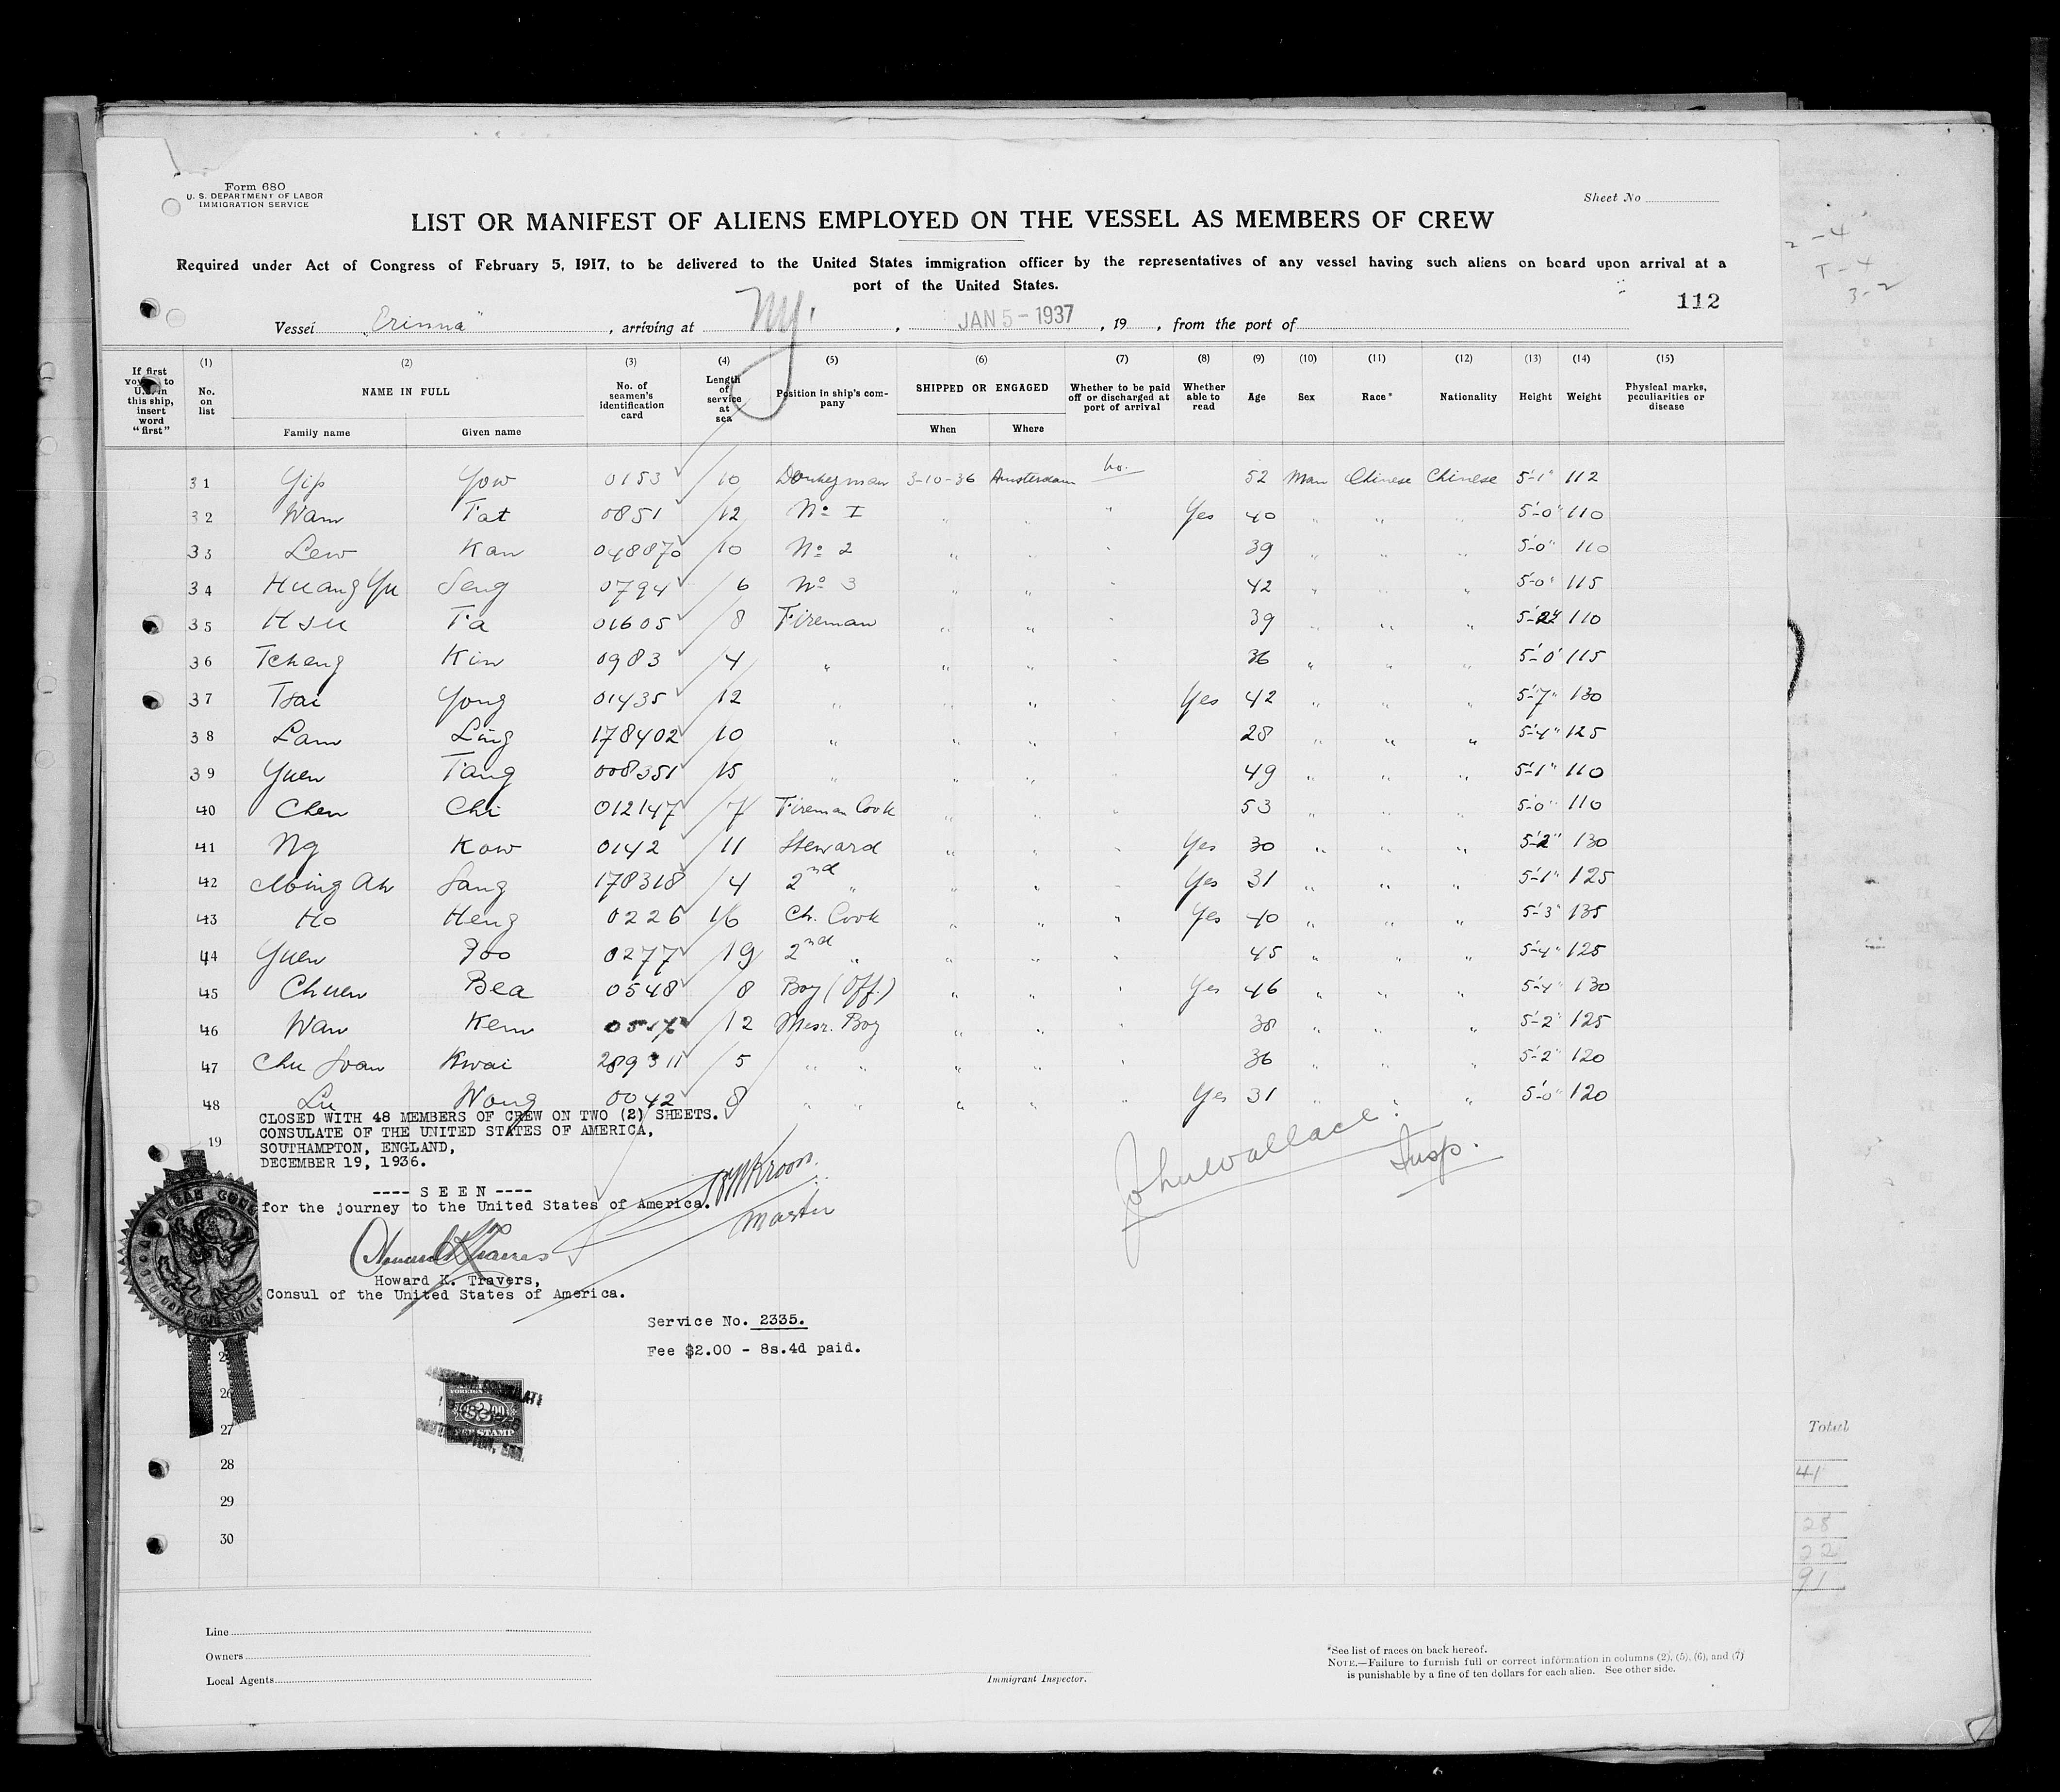 Form 680
U. S. DEPARTMENT OF LABOR
IMMIGRATION SERVICE
Sheet No
LIST OR MANIFEST OF ALIENS EMPLOYED ON THE VESSEL AS MEMBERS OF CREW
Required under Act of Congress of February 5, 1917, to be delivered to the United States immigration officer by the representatives of any vessel having such aliens on board upon arrival at a
port of the United States.
112
Vessel "Erinna", arriving at Ny., JAN 5 - 1937, 19, from the port of
If first voyage to U.S. in this ship, insert word "first"
(1) No. on list
(2) NAME IN FULL Family name Given name
(3) No. of seamen's identification card
(4) Length of service at sea
(5) Position in ship's company
(6) SHIPPED OR ENGAGED When Where
(7) Whether to be paid off or discharged at port of arrival
(8) Whether able to read
(9) Age
(10) Sex
(11) Race*
(12) Nationality
(13) Height
(14) Weight
(15) Physical marks, peculiarities or disease
31 Yip Yow 0153 10 Donkeyman 3-10-36 Amsterdam no. 52 Man Chinese Chinese 5'-1" 112
32 Wam Tat 0851 12 No I " " " Yes 40 " " " 5'-0" 110
33 Lew Kan 048870 10 No 2 " " " 39 " " " 5'-0" 110
34 Huang Yu Seng 0794 6 No 3 " " " 42 " " " 5'-0" 115
35 Hsu Ta 01605 8 Fireman " " " 39 " " " 110
36 Tcheng Kin 0983 4 " " " " 36 " " " 5'-0" 115
37 Tsai Yong 01435 12 " " " " Yes 42 " " " 5'-7" 130
38 Lam Ling 178402 10 " " " " 28 " " " 5'-4" 125
39 Yuen Tang 008351 15 " " " " 49 " " " 5'-1" 110
40 Chen Chi 012147 7 Fireman Cook " " " 53 " " " 5'-0" 110
41 Ng Kow 0142 11 Steward " " " Yes 30 " " " 5'-2" 130
42 Ming Ah Sang 178318 4 2nd " " " " Yes 31 " " " 5'-1" 125
43 Ho Heng 0226 16 Ch. Cook " " " Yes 40 " " " 5'-3" 135
44 Yuen Foo 0277 19 2nd " " " " 45 " " " 5'-4" 125
45 Chuen Bea 0548 8 Boy (Off.) " " " Yes 46 " " " 5'-4" 130
46 Wan Kem 12 Mesr. Boy " " " 38 " " " 5'-2" 125
47 Chu Soan Kwai 289311 5 " " " " " 36 " " " 5'-2" 120
48 Lu Wong 0042 8 " " " " Yes 31 " " " 5'-0" 120
CLOSED WITH 48 MEMBERS OF CREW ON TWO (2) SHEETS.
CONSULATE OF THE UNITED STATES OF AMERICA,
19
SOUTHAMPTON, ENGLAND,
DECEMBER 19, 1936.
---- S E E N ----
for the journey to the United States of America.
Kroon.
Master
John Wallace
Insp.
Howard K. Travers
Howard K. Travers,
Consul of the United States of America.
Service No. 2335.
Fee $2.00 - 8s.4d paid.
FEE STAMP
26
27
28
29
30
Total
41
28
22
91
Line
Owners
Local Agents
Immigrant Inspector.
*See list of races on back hereof.
NOTE.—Failure to furnish full or correct information in columns (2), (5), (6), and (7)
is punishable by a fine of ten dollars for each alien. See other side.